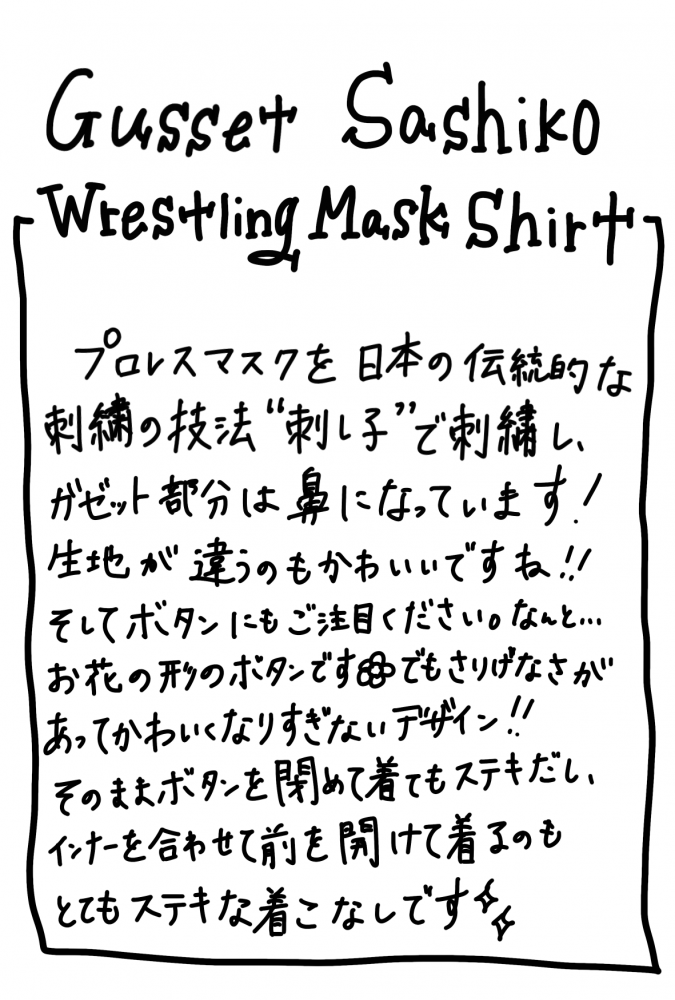 Gusset Sashiko
Wrestling Mask Shirt
プロレスマスクを日本の伝統的な
刺繍の技法“刺し子”で刺繍し、
ガゼット部分は鼻になっています!
生地が違うのもかわいいですね!!
そしてボタンにもご注目ください。なんと…
お花の形のボタンですでもさりげなさが
あってかわいくなりすぎないデザイン!!
そのままボタンを閉めて着てもステキだし、
インナーを合わせて前を開けて着るのも
とてもステキな着こなしです